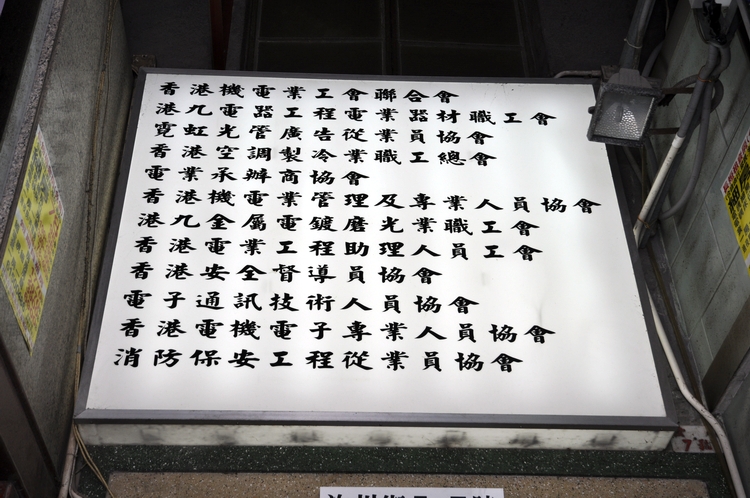 香港機電業工會聯合會
港九電器工程電業器材職工會
霓虹光管廣告從業員協會
香港空調製冷業職工總會
電業承辦商協會
香港機電業管理及專業人員協會
港九金屬電鍍磨光業職工會
香港電業工程助理人員工會
香港安全督導員協會
電子通訊技術人員協會
香港電機電子專業人員協會
消防保安工程從業員協會